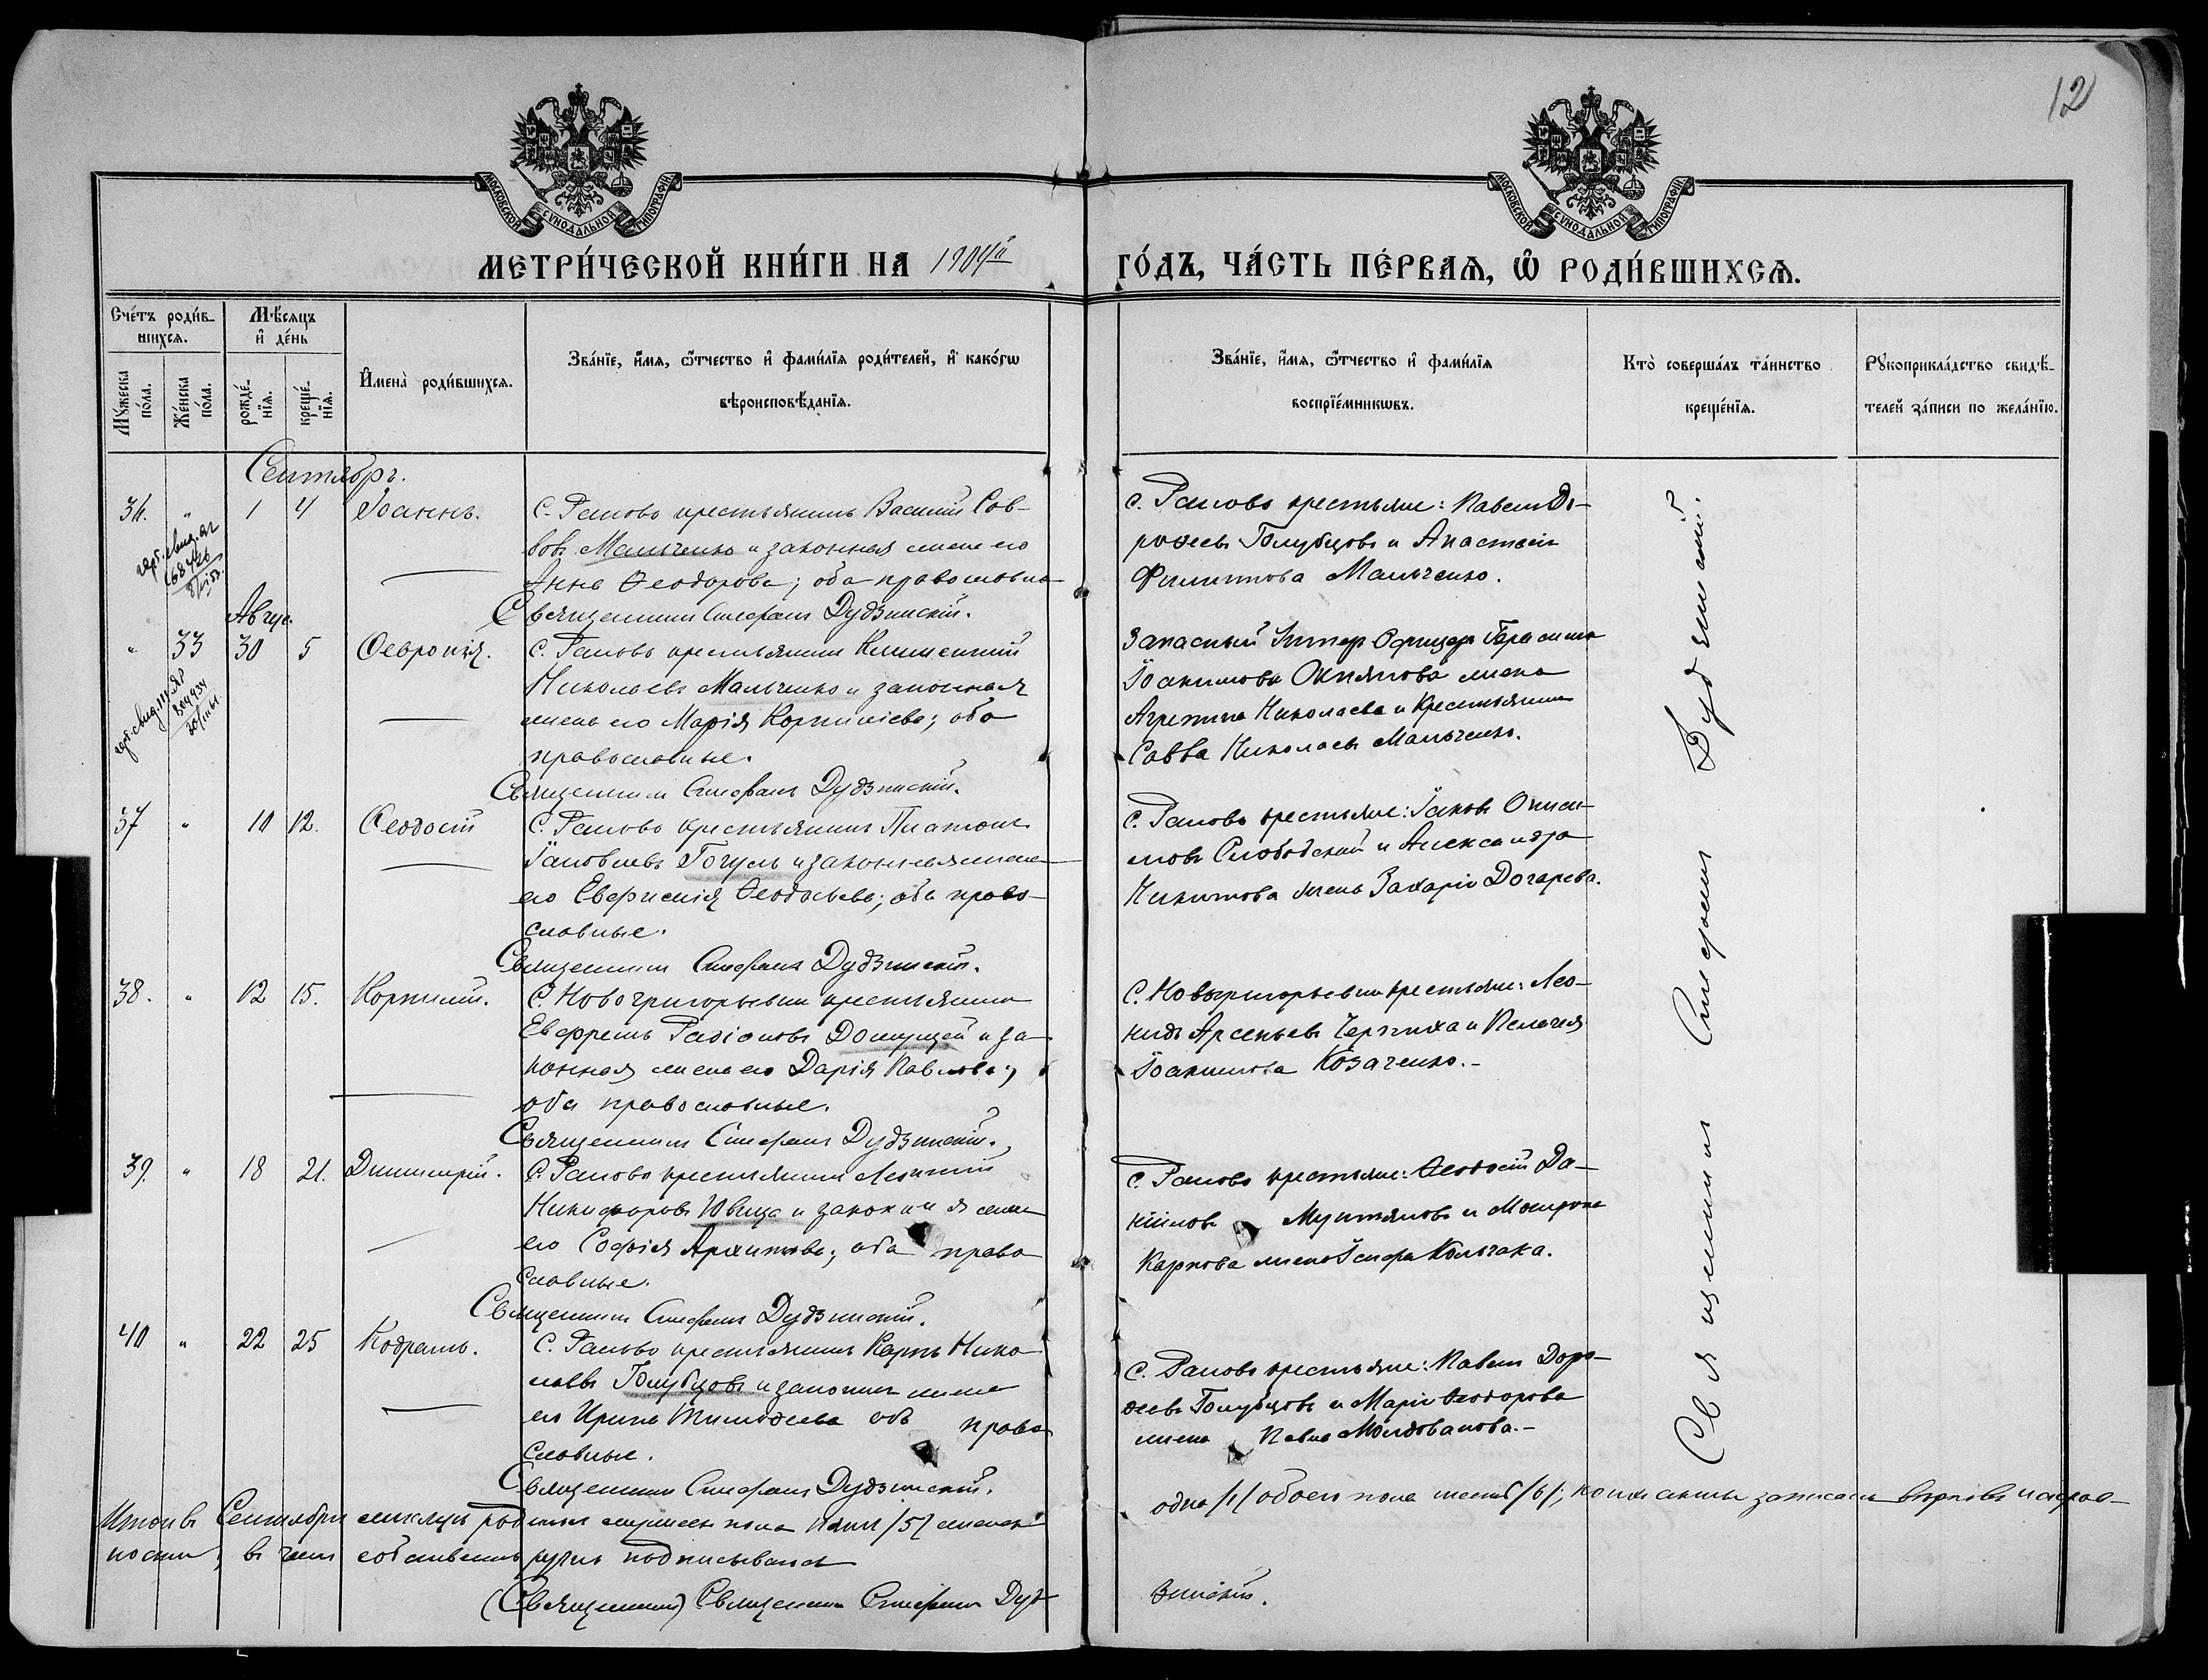 12
МОСКОВСКОЙ СѴНОДАЛЬНОЙ ТИПОГРАФІИ
МОСКОВСКОЙ СѴНОДАЛЬНОЙ ТИПОГРАФІИ
МЕТРИ́ЧЕСКОЙ КНИ́ГИ НА 1904й ГО́ДЪ, ЧА́СТЬ ПЕ́РВАѦ, Ѿ РОДИ́ВШИХСѦ.
Сче́тъ роди́в-
шихся.
Мѣ́сяцъ
и҆ де́нь
Мꙋ́жеска по́ла.
Же́нска по́ла.
рожде́-
нїя.
креще́-
нїя.
И҆мена̀ роди́вшихся.
Зва́нїе, и҆́мя, ѻ҆́тчество и҆ фами́лїя роди́телей, и҆ како́гѡ
вѣроисповѣ́данїя.
Зва́нїе, и҆́мя, ѻ҆́тчество и҆ фами́лїя
воспрїе́мникѡвъ.
Кто̀ соверша́лъ та́инство
креще́нїя.
Рꙋкоприкла́дство свидѣ́-
телей за́писи по жела́нїю.
Сентябрь.
36. " 1 4 Іоаннъ.
С. Раково крестьянинъ Василій Сав-
вовъ Мальченко и законная жена его
Анна Ѳеодорова; оба православна
Священникъ Стефанъ Дудзинскій.
с. Раково крестьяне: Павелъ До-
роѳеевъ Голубцовъ и Анастасія
Филиппова Мальченко.
Август.
" 33 30 5 Ѳевронія.
С. Раково крестьянинъ Климентій
Николаевъ Мальченко и законная
жена его Марія Корниліева; оба
православные.
Священникъ Стефанъ Дудзинскій.
Запасный Унтеръ Офицеръ Герасима
Іоакимова жена
Агрипина Николаева и Крестьянинъ
Савва Николаевъ Мальченко.
37 " 10 12. Ѳеодосій
С. Раково крестьянинъ Платонъ
Іаковлевъ Гогуль и законная жена
его Евфимія Ѳеодосьева; оба право-
славные.
Священникъ Стефанъ Дудзинскій.
С. Раково крестьяне: Іаковъ Ониси-
мовъ Слободскай и Александра
Никитова жена Захарія Догарева.
38. " 12 15. Корнилій.
С. Новогригорьевки крестьянинъ
Евфремъ Радіоновъ и за-
конная жена его Дарія Павлова;
оба православные.
Священникъ Стефанъ Дудзинскій.
С. Новогригорьевки крестьяне: Лео-
нидъ Арсеньевъ и Пелагея
Іоакимова Козаченко.-
39. " 18 21. Димитрій.
С. Раково крестьянинъ Леонтій
Никифоровъ Ювица и законная жена
его Софія Архипова; оба право
славные.
Священникъ Стефанъ Дудзинскій.
С. Раково крестьяне: Ѳеодосій Да-
ніиловъ Мунтяновъ и Матрона
Карпова жена Іосифа Кольчака.
40 " 22 25 Кодратъ.
С. Раково крестьянинъ Карпъ Нико
лаевъ Голубцовъ и законная жена
его Ирина Тимоѳеева оба право
славные.
Священникъ Стефанъ Дудзинскій.
С. Раково крестьяне: Павелъ Доро-
ѳеевъ Голубцовъ и Марія Ѳеодорова
жена Павла Молдованова.-
Священникъ Стефанъ Дудзинскій.
Итого въ Сентябрѣ мѣсяцѣ родилось мужеска пола пять /5/ женска
одна /1/ обоего пола шесть /6/; въ
ности, въ чемъ собственноручно подписываюсь
(Священникъ) Священникъ Стефанъ Дуд-
зинскій.